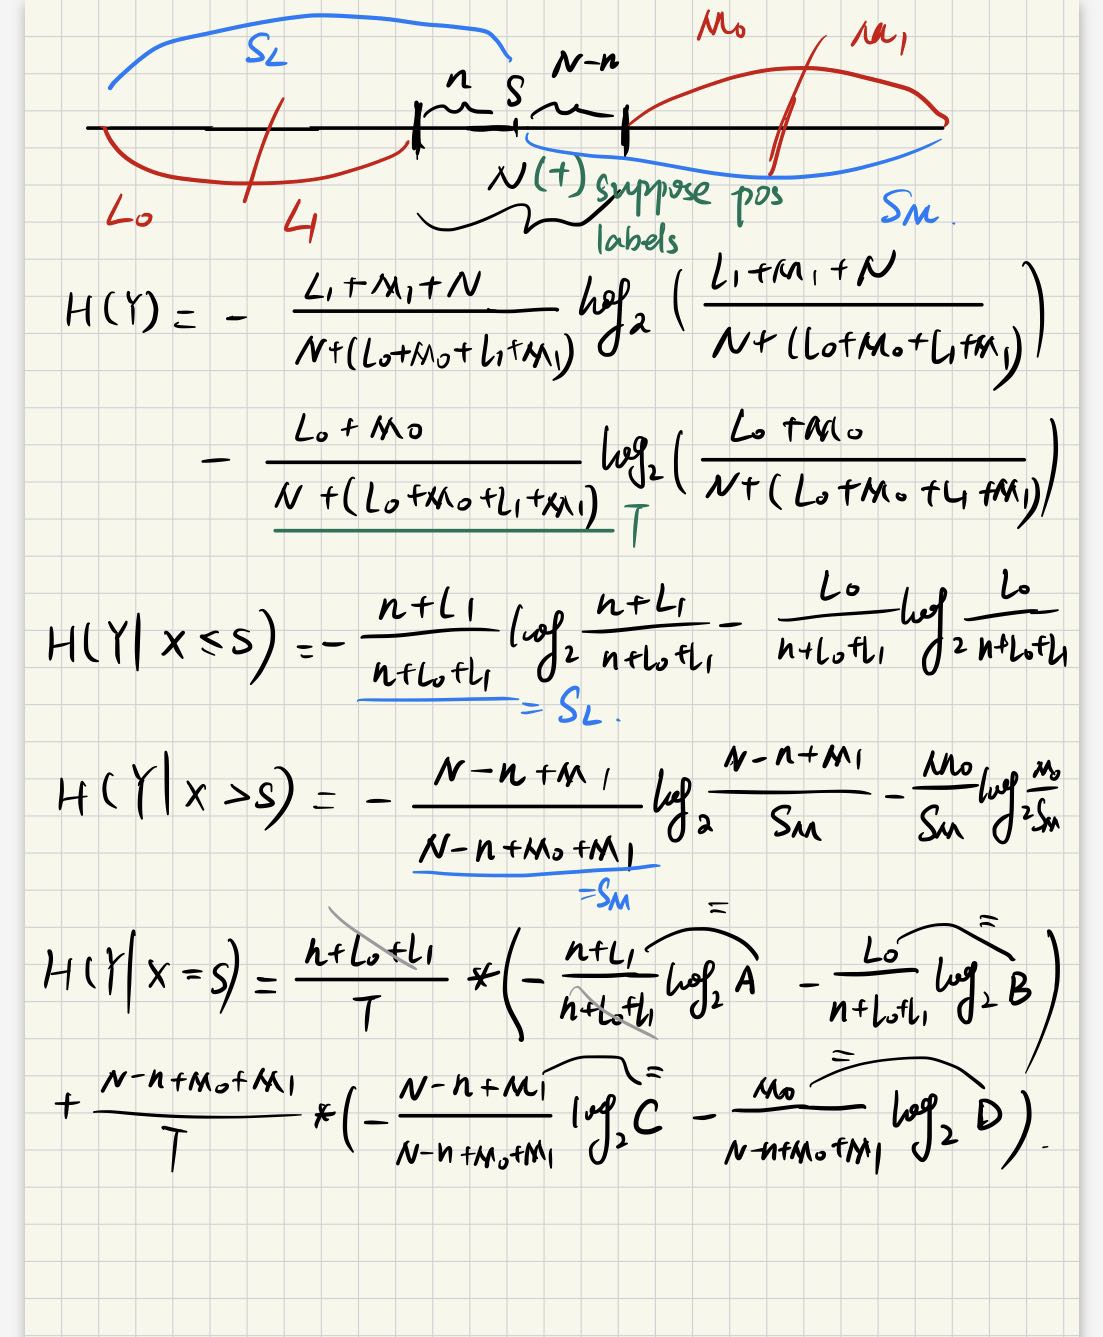 S_L n S N-n M_0 M_1
N (+) suppose pos
L_0 L_1 labels S_M.
H(Y) = - \frac{L_1+M_1+N}{N+(L_0+M_0+L_1+M_1)} log_2 ( \frac{L_1+M_1+N}{N+(L_0+M_0+L_1+M_1)} )
- \frac{L_0+M_0}{N+(L_0+M_0+L_1+M_1)} log_2 ( \frac{L_0+M_0}{N+(L_0+M_0+L_1+M_1)} )
T
H(Y| x ≤ s) = - \frac{n+L_1}{n+L_0+L_1} log_2 \frac{n+L_1}{n+L_0+L_1} - \frac{L_0}{n+L_0+L_1} log_2 \frac{L_0}{n+L_0+L_1}
= S_L.
H(Y| x > s) = - \frac{N-n+M_1}{N-n+M_0+M_1} log_2 \frac{N-n+M_1}{S_M} - \frac{M_0}{S_M} log_2 \frac{M_0}{S_M}
= S_M
H(Y| x = s) = \frac{n+L_0+L_1}{T} * ( - \frac{n+L_1}{n+L_0+L_1} log_2 A = - \frac{L_0}{n+L_0+L_1} log_2 B = )
+ \frac{N-n+M_0+M_1}{T} * ( - \frac{N-n+M_1}{N-n+M_0+M_1} log_2 C = - \frac{M_0}{N-n+M_0+M_1} log_2 D = ).